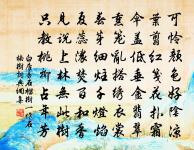 可憐顏色好陰涼
葉剪紅牋花撲霜
傘蓋低垂金翡翠
薰籠亂搭繡衣裳
春芽細炷千燈焰
夏蕊濃焚百和香
見說上林無此樹
只教桃柳占年芳
白居易石榴樹一作石
楠樹